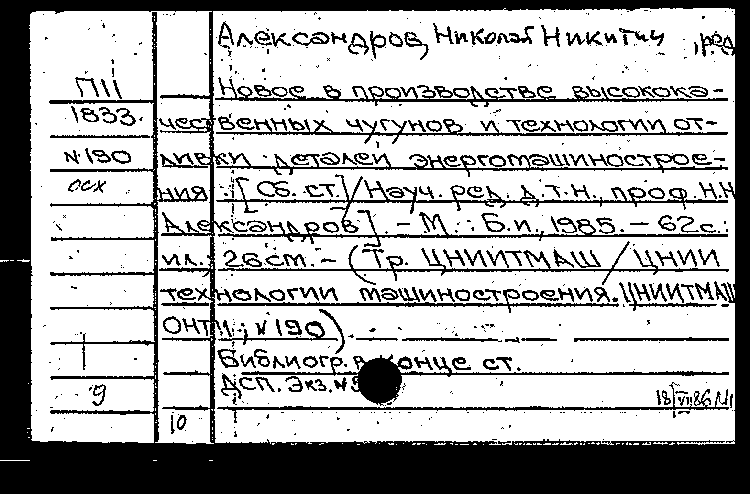 Александров, Николай Никитич, ред
П11
1833.
N190
осх
Новое в производстве высокока-
чественных чугунов и технологии от-
ливки деталей энергомашинострое-
ния : [Сб. ст.] / Науч. ред. д.т.н., проф. Н.Н.
Александров]. - М. : Б.и., 1985. - 62с.:
ил.; 26см. - (Тр. ЦНИИТМАШ / ЦНИИ
технологии машиностроения. ЦНИИТМАШ
ОНТИ; N190).
Библиогр. в конце ст.
ДСП. Экз. N
9
18/VII86
10